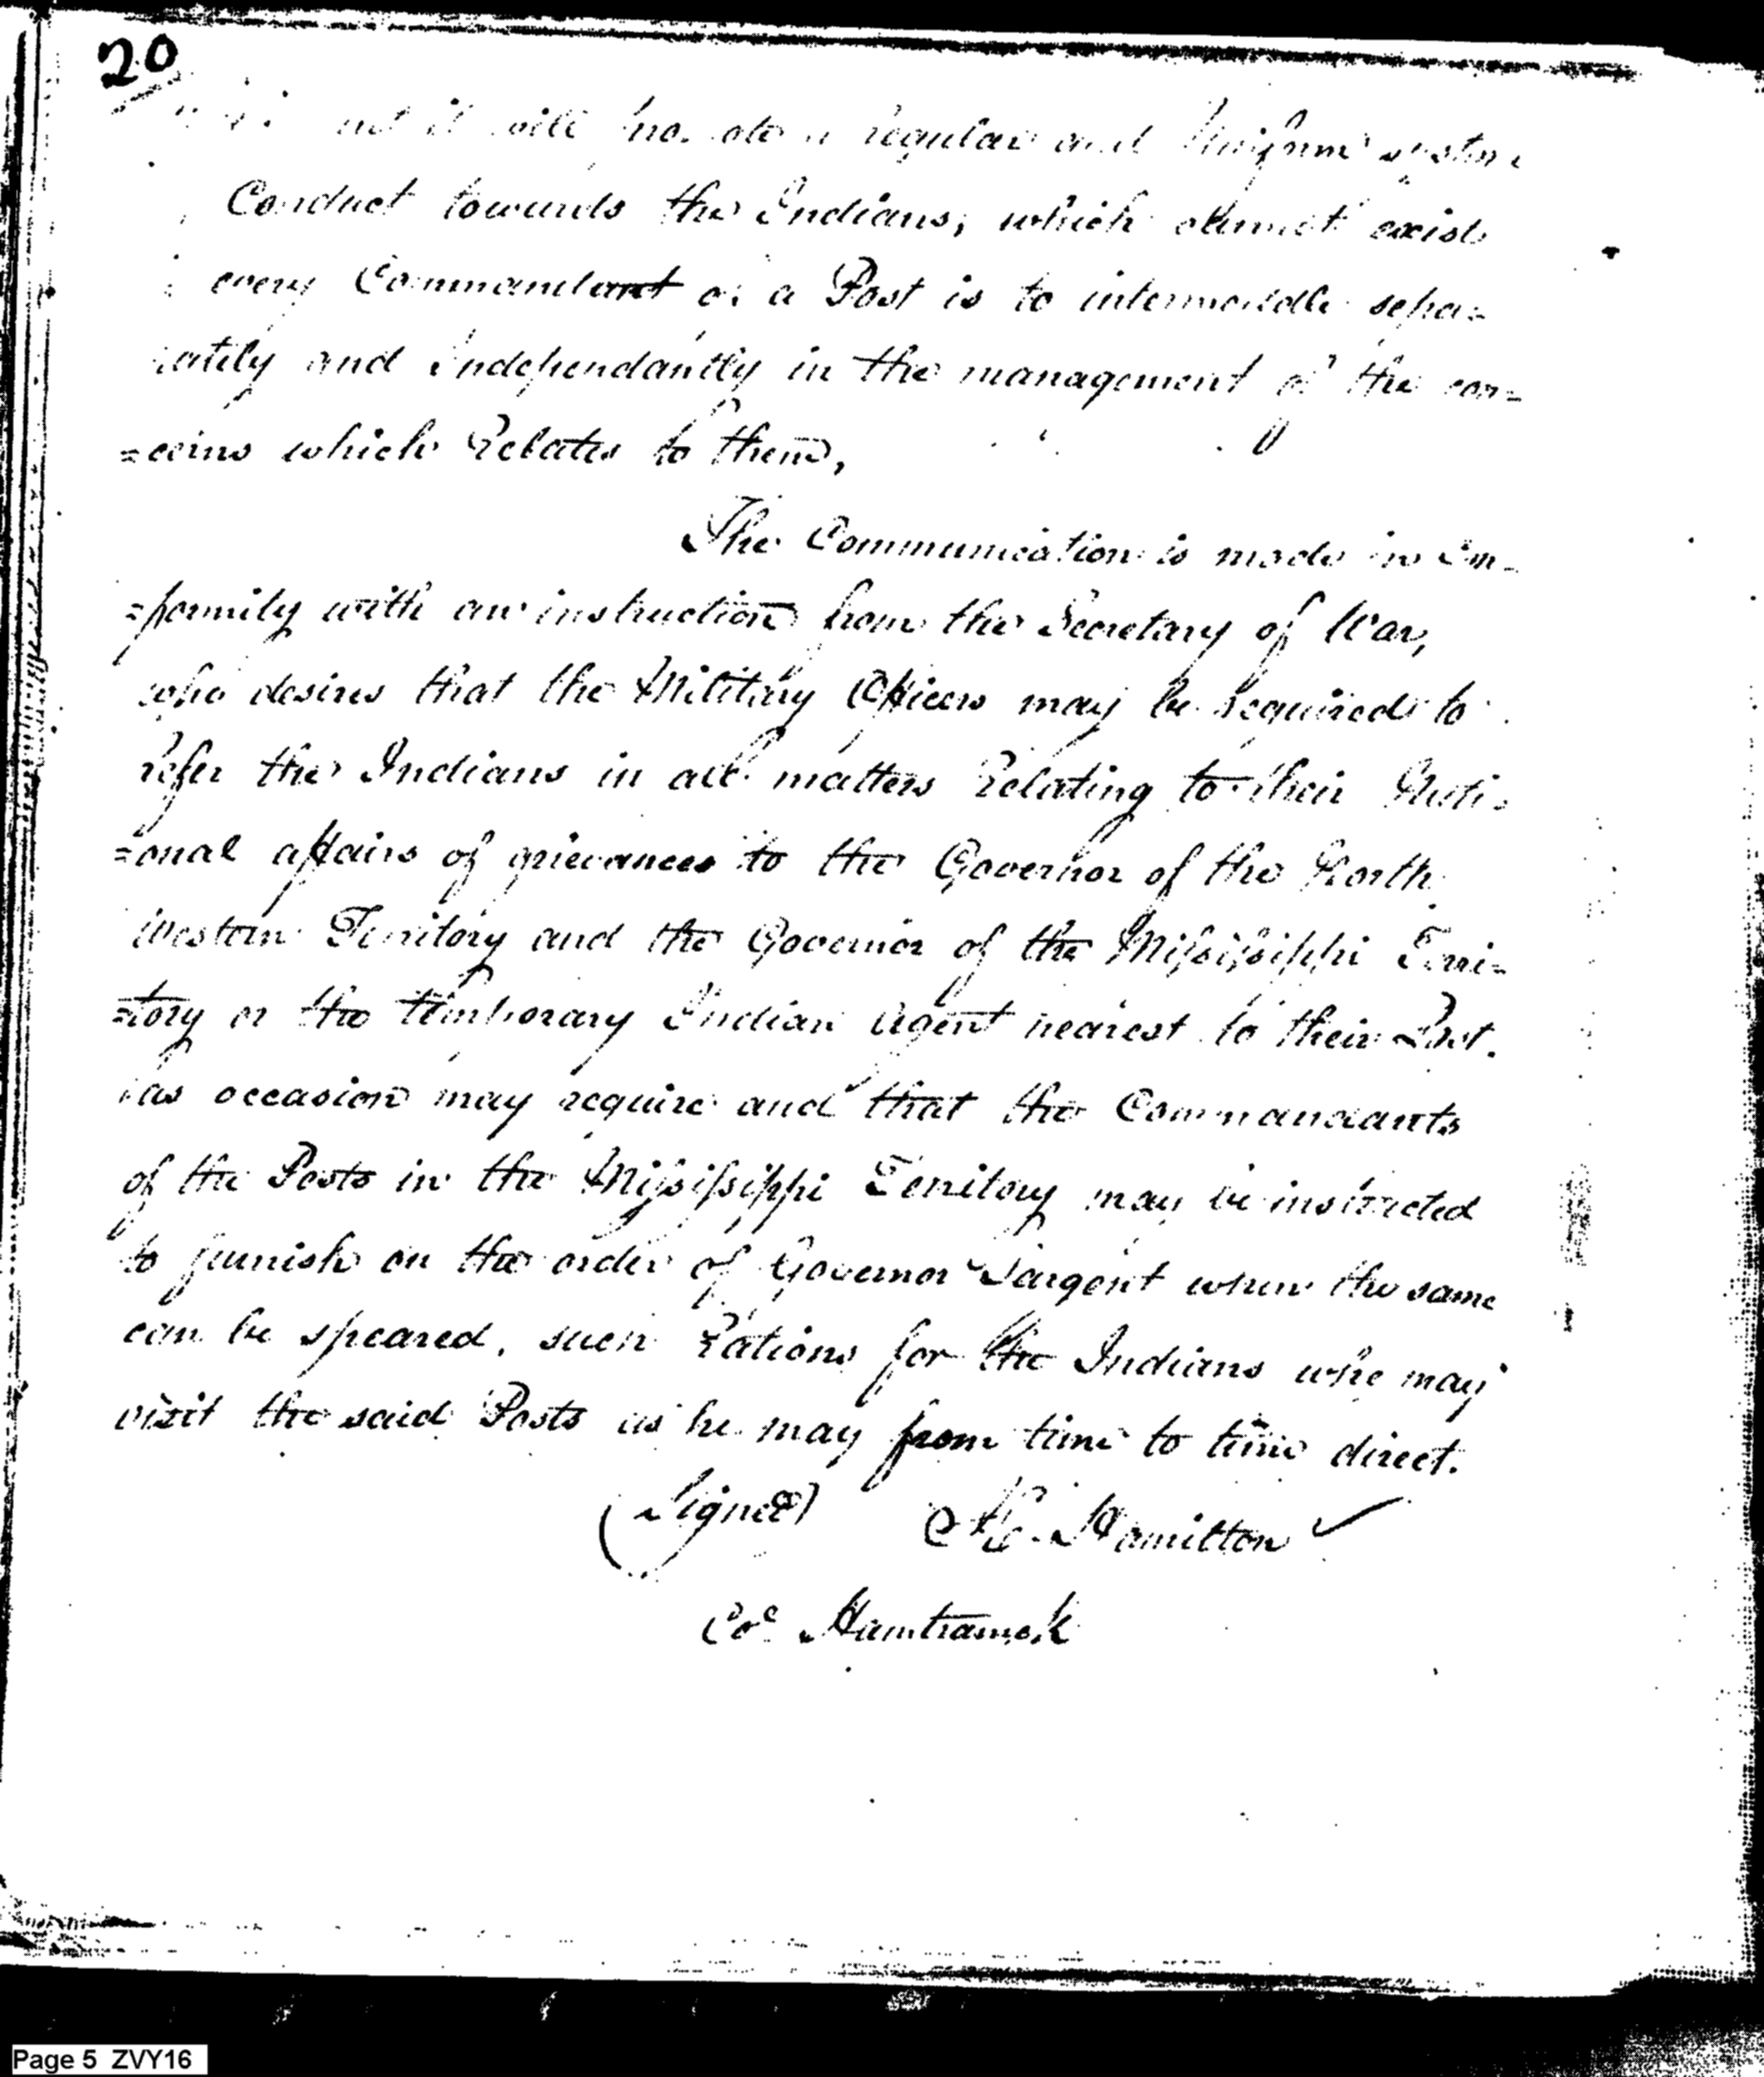 20
it will regular and Uniform system
Conduct towards the Indians, which cannot exist
every Commandant of a Post is to intermeddle sepa=
rately and Independantly in the management of the con=
=cerns which Relates to them,
The Communication is made in Con=
=formity with an instruction from the Secretary of War,
who desires that the Military Officers may be required to
refer the Indians in all matters Relating to their Nati=
=onal affairs of grievances to the Governor of the North
Western Territory and the Governor of the Mississippi Terri=
=tory or the temporary Indian Agent nearest to their Post.
as occasion may require and that the Commandants
of the Posts in the Mississippi Territory may be instructed
to furnish on the order of Governor Sargent when the same
can be speared, such Rations for the Indians who may
visit the said Posts as he may from time to time direct.
(Signed) Hamilton
Col Hamtramck
Page 5 ZVY16